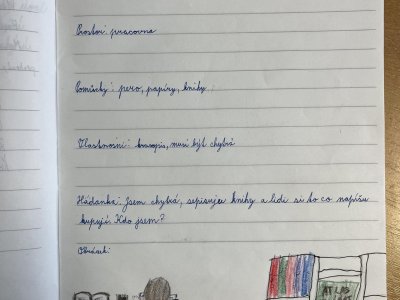 Prostor: pracovna
Pomůcky: pero, papíry, knihy
Vlastnosti: krasopis, musí být chytrá
Hádanka: Jsem chytrá, sepisuje knihy a lidé si to co napíšu
kupují. Kdo jsem?
Obrázek:
ATLAS